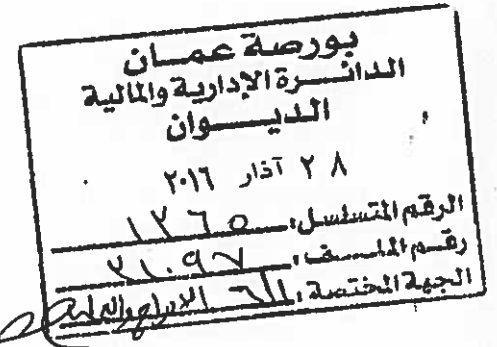 بورصة عمان
الدائرة الإدارية والمالية
الديوان
٢٨ آذار ٢٠١٦
الرقم المتسلسل: ١٢٦٥
رقم الملف: ٣١٠٩٧
الجهة المختصة: